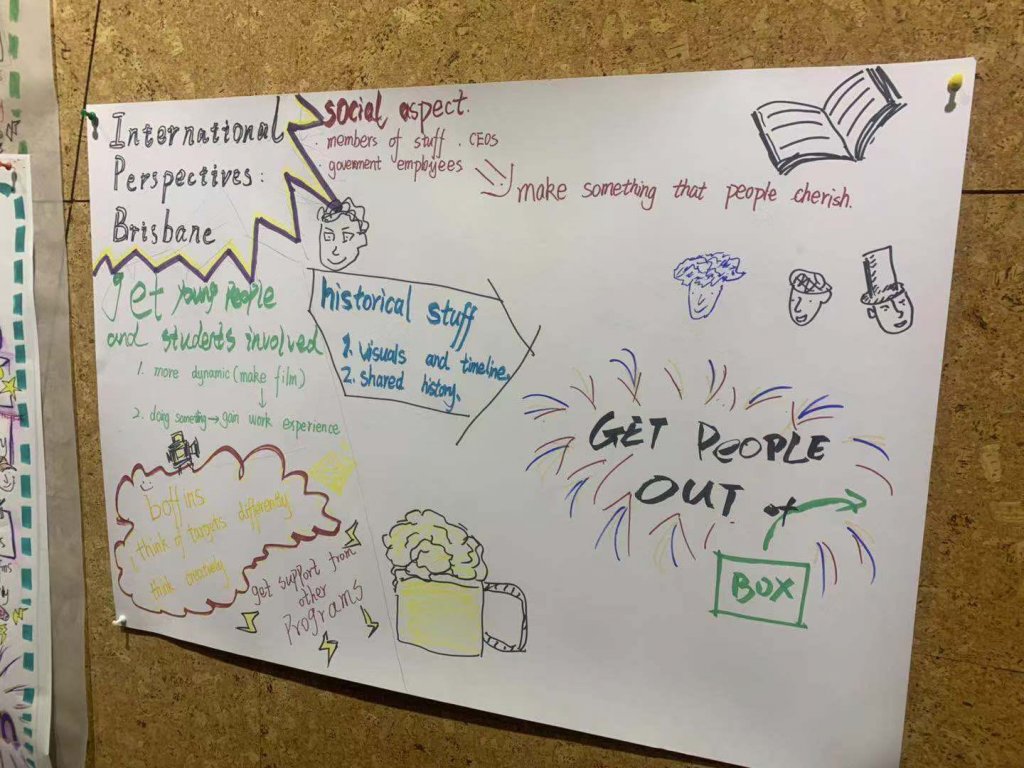 International
Perspectives:
Brisbane
social aspect.
· members of stuff . CEOS
· government employees
make something that people cherish.
get young people
and students involved
1. more dynamic (make film)
2. doing something → gain work experience
historical stuff
1. visuals and timeline.
2. shared history.
boffins
think of targets differently
think creatively
get support from
other
Programs
GET PEOPLE
OUT of
BOX